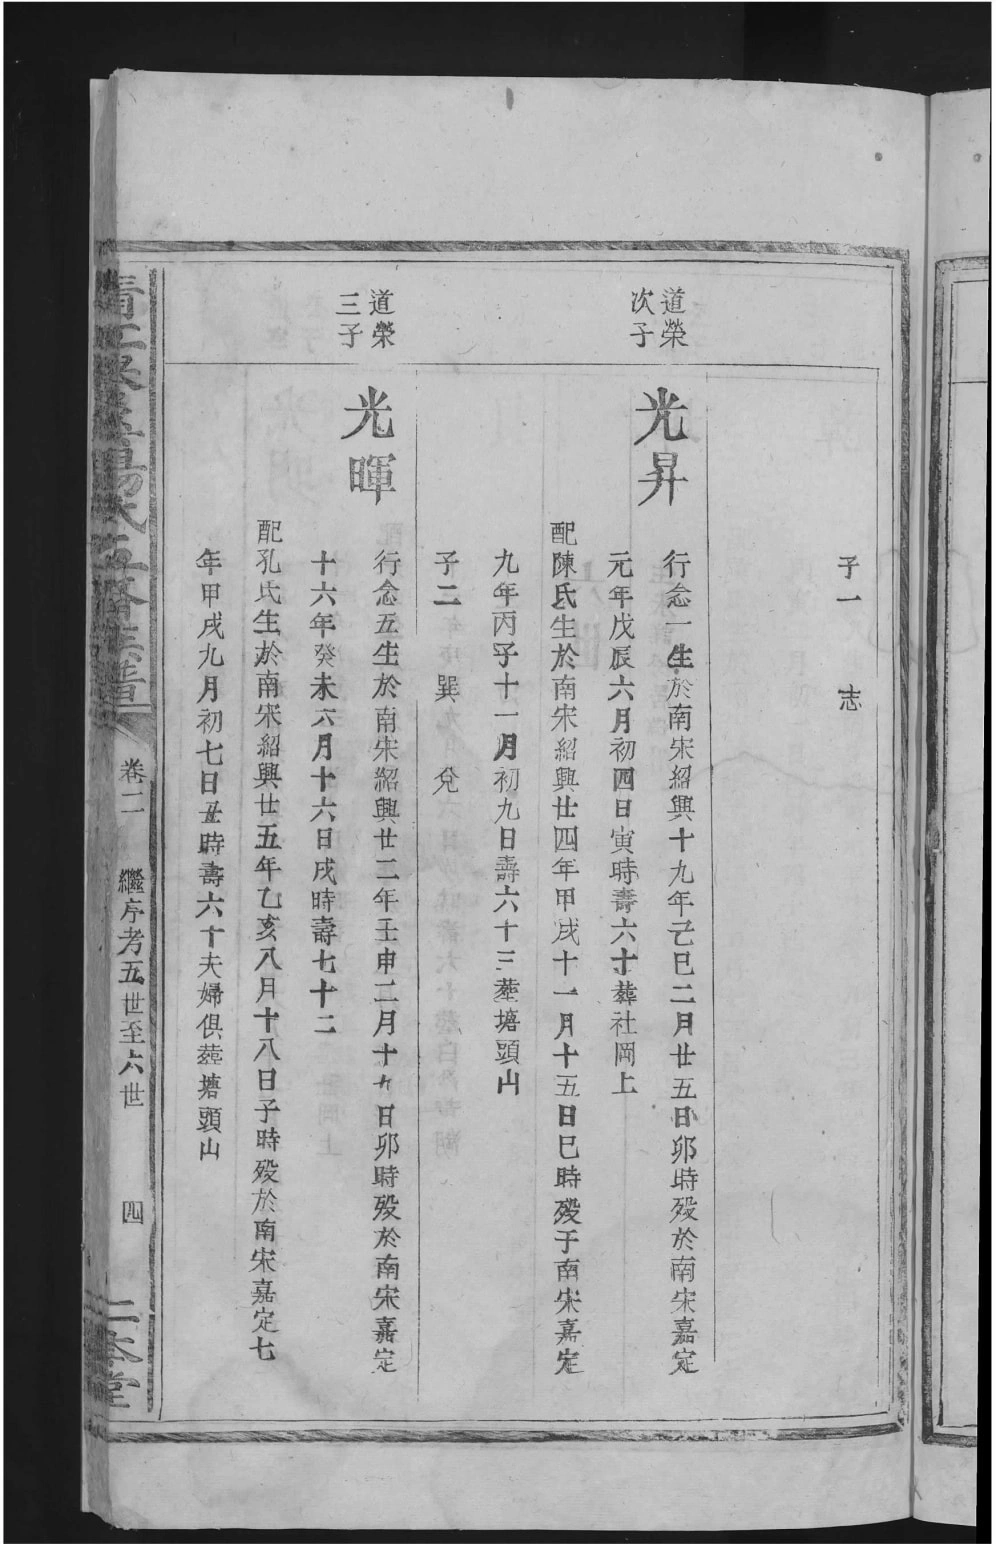 子一　志
道榮
次子
光昇
行念一生於南宋紹興十九年己巳二月廿五日卯時歿於南宋嘉定
元年戊辰六月初四日寅時壽六十葬社岡上
配陳氏生於南宋紹興廿四年甲戌十一月十五日巳時歿于南宋嘉定
九年丙子十一月初九日壽六十三葬塘頭山
子二　巽　兌
道榮
三子
光暉
行念五生於南宋紹興廿二年壬申二月十九日卯時歿於南宋嘉定
十六年癸未六月十六日戌時壽七十二
配孔氏生於南宋紹興廿五年乙亥八月十八日子時歿於南宋嘉定七
年甲戌九月初七日丑時壽六十夫婦俱葬塘頭山
楊氏五修族譜
卷二
繼序考五世至六世
四
二本堂